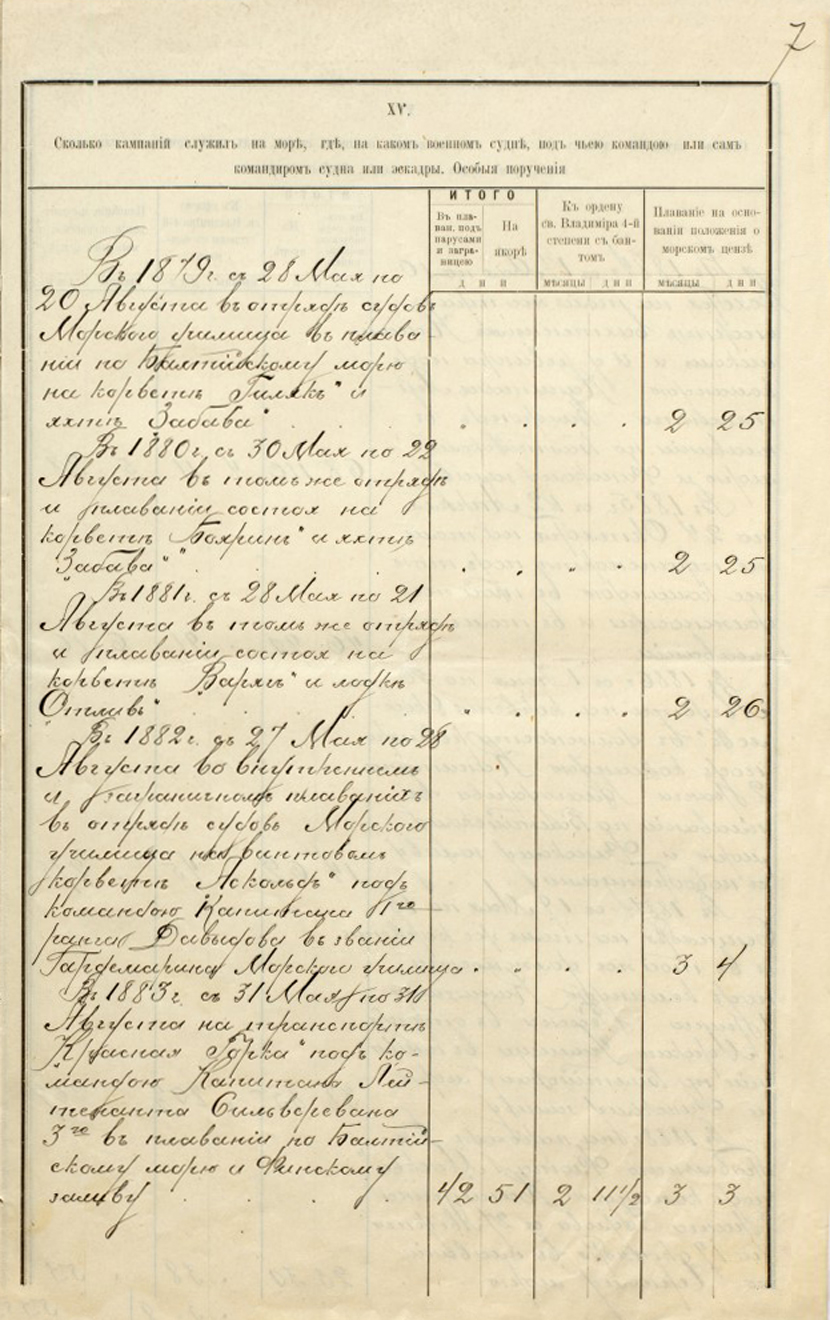 7
XV.
Сколько кампаній служилъ на морѣ, гдѣ, на какомъ военномъ суднѣ, подъ чьею командою или самъ
командиромъ судна или эскадры. Особыя порученія
ИТОГО
Въ пла-
ван. подъ
парусами
и загра-
ницею
На
якорѣ
дни
Къ ордену
св. Владиміра 4-й
степени съ бан-
томъ
мѣсяцы дни
Плаваніе на осно-
ваніи положенія о
морскомъ цензѣ
мѣсяцы дни
Въ 1879 г. съ 28 Мая по
20 Августа въ отрядѣ судовъ
Морского училища въ плава
ніи по Балтійскому морю
на корветѣ „Гилякъ" и
яхтѣ „Забава" . . . . 2 25
Въ 1880 г. съ 30 Мая по 22
Августа въ томъ же отрядѣ
и плаваніи состоя на
корветѣ „Бояринъ" и яхтѣ
„Забава" . . . . 2 25
Въ 1881 г. съ 28 Мая по 21
Августа въ томъ же отрядѣ
и плаваніи состоя на
корветѣ „Варягъ" и лодкѣ
„Отливъ" . . . . 2 26
Въ 1882 г. съ 27 Мая по 28
Августа во внутреннемъ
и заграничномъ плаваніяхъ
въ отрядѣ судовъ Морского
училища на винтовомъ
корветѣ „Аскольдъ" подъ
командою Капитана 1го
ранга Давыдова въ званіи
Гардемарина Морского училища . . . . 3 4
Въ 1883 г. съ 31 Мая по 31
Августа на транспортѣ
„Красная Горка" подъ ко-
мандою Капитанъ Лей-
тенанта Сильверсвана
3го въ плаваніи по Балтій-
скому морю и Финскому
заливу . . . 42 51 2 11 1/2 3 3